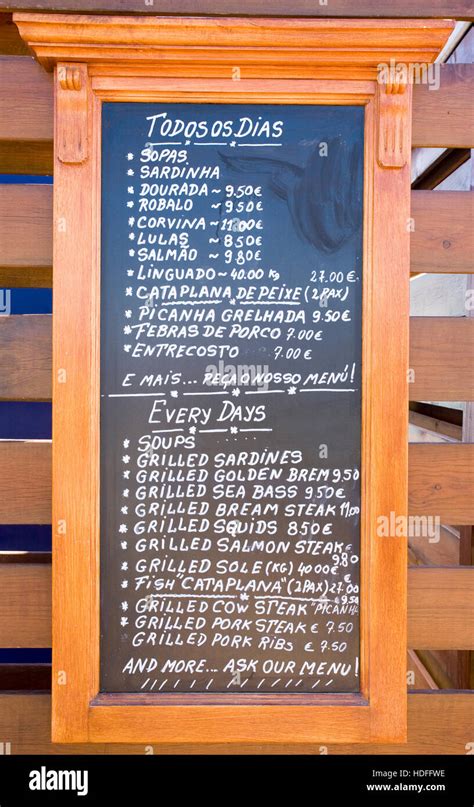 Todos os Dias
* Sopas
* Sardinha
* Dourada ~ 9.50€
* Robalo ~ 9.50€
* Corvina ~ 11.00€
* Lulas ~ 8.50€
* Salmão ~ 9.80€
* Linguado ~ 40.00 Kg
27.00€
* Cataplana de Peixe (2 Pax)
* Picanha Grelhada 9.50€
* Febras de Porco 7.00€
* Entrecosto 7.00€
E mais... peça o nosso menú!
Every Days
* Soups
* Grilled Sardines
* Grilled Golden Brem 9.50
* Grilled Sea Bass 9.50€
* Grilled Bream Steak 11,00
* Grilled Squids 8.50€
* Grilled Salmon Steak
9.80
* Grilled Sole (Kg) 40.00€
* Fish "Cataplana" (2 Pax) 27.00
€ 9.50
* Grilled Cow Steak "Picanh
* Grilled Pork Steak € 7.50
Grilled Pork Ribs € 7.50
And more... ask our menu!
alamy
alamy
Image ID: HDFFWE
www.alamy.com